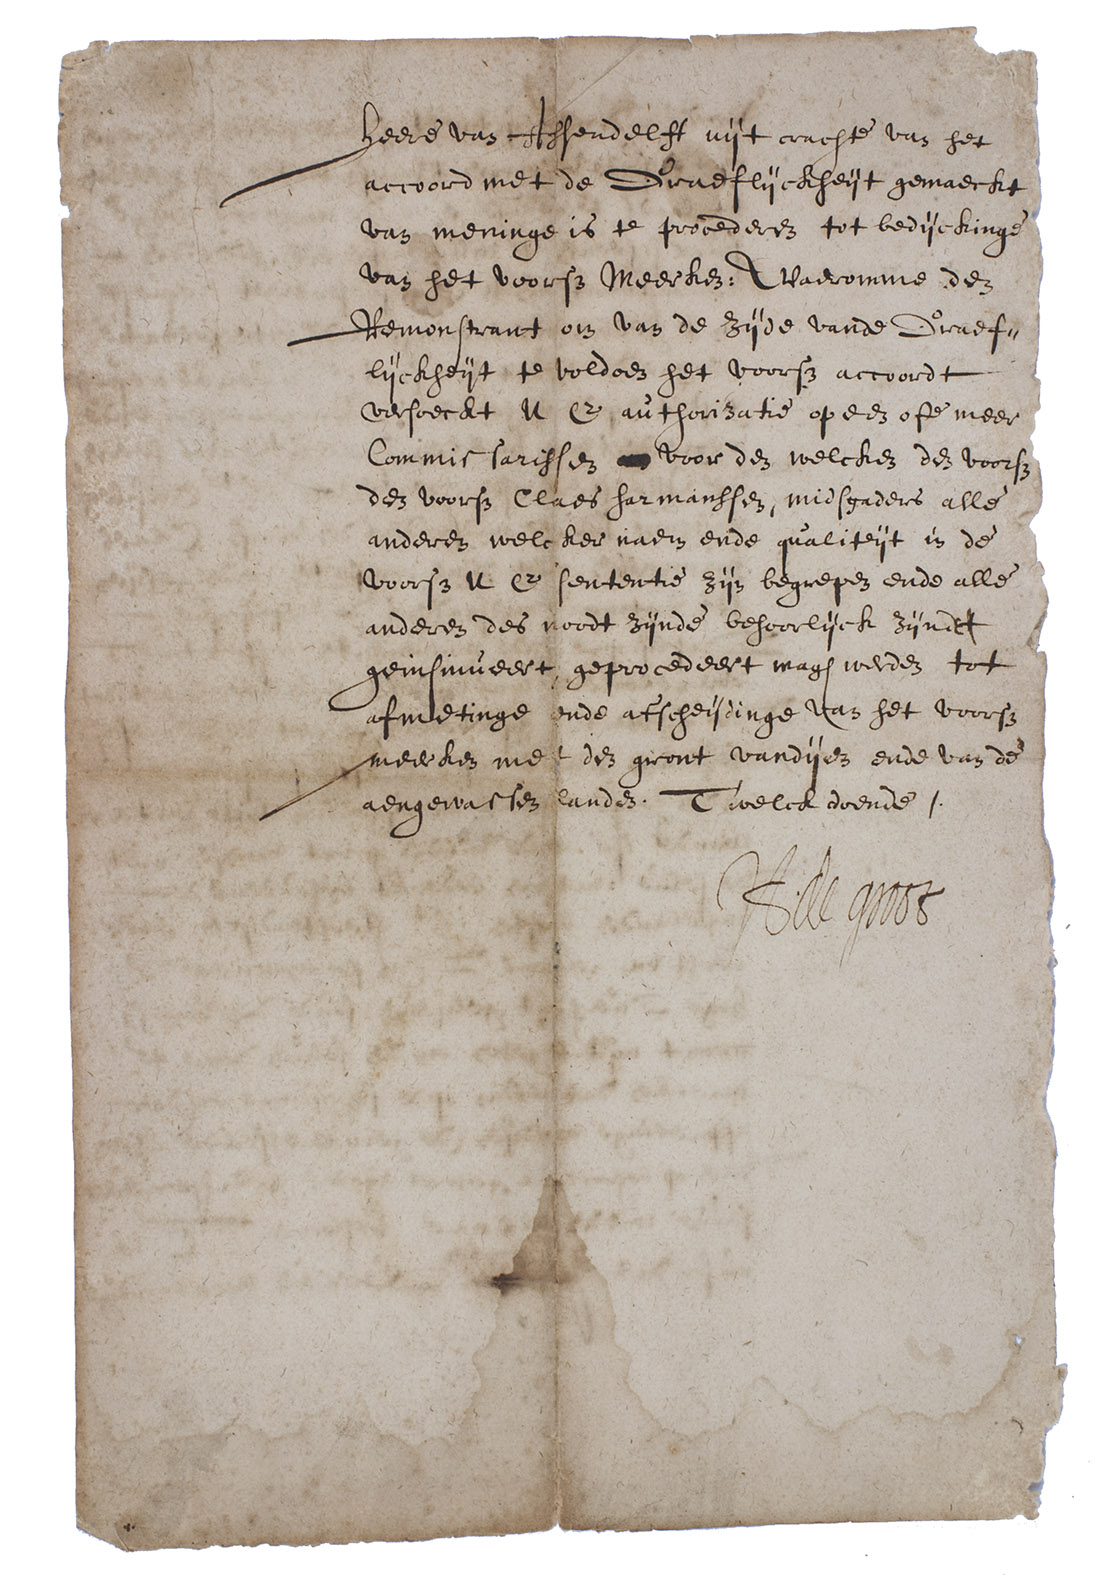 heere van Assendelft uijt crachte van het
accoord met de Graeflijckheijt gemaeckt
van meninge is te procederen tot bedijckinge
van het voorsz Meerken: Waeromme den
Remonstrant om van de zijde vande Graef-
lijckheijt te voldoen het voorsz accoordt
versoeckt U E authorizatie op een ofte meer
Commissarissen voor den welcken den voorsz
den voorsz Claes harmanssen, midsgaders alle
anderen welcker naem ende qualiteijt in de
voorsz U E sententie zijn begrepen ende alle
anderen des noodt zijnde behoorlijck zijnde
geinsinueert, geprocedeert mach werden tot
afmetinge ende afscheijdinge van het voorsz
meerken met den gront vandijen ende van de
aengewassen landen. Twelck doende /.
H. de groot